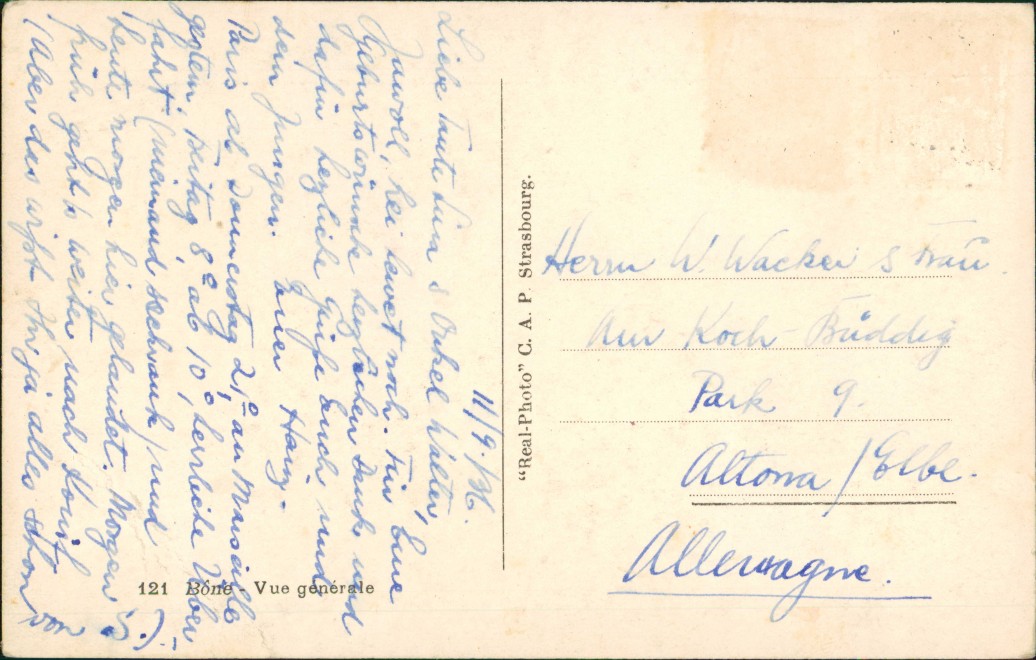 11/9./36.
Liebe Tante Lina & Onkel Walter,
Jawoll, hei leewet noch. Für Eure
Geburtswünsche herzlichen Dank und
dafür herzliche Grüße Euch und
den Jungen. Euer Harry.
Paris ab Donnerstag 21,° an Marseille
gestern, Freitag 8° ab 10°, herrliche Über
fahrt (niemand seekrank) und
heute morgen hier gelandet. Morgen
früh geht's weiter nach
(Aber das wißt Ihr ja alles schon von S.)
121 Bône - Vue générale
"Real-Photo" C. A. P. Strasbourg.
Herrn W. Wacker & Frau
Am Koch
Park 9.
Altona / Elbe.
Allemagne.